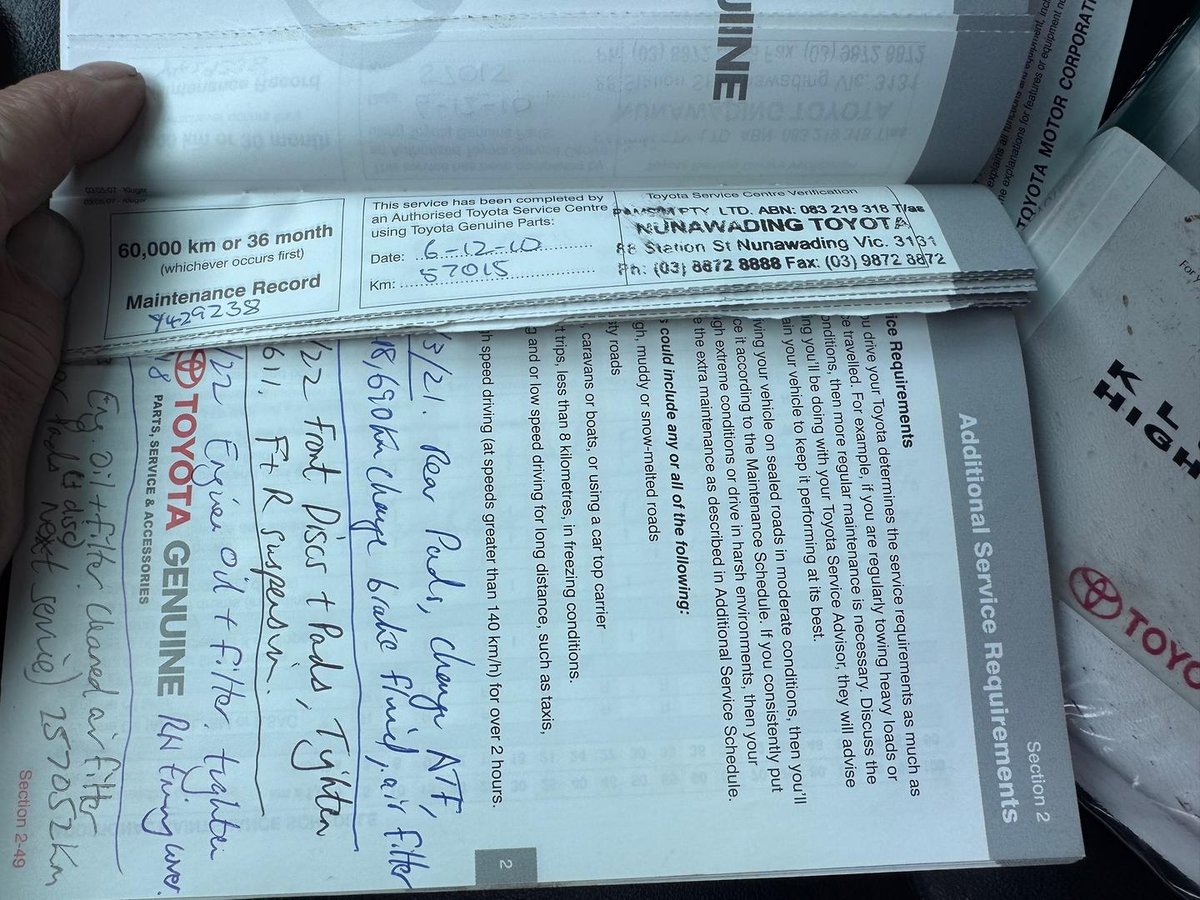 UINE
60,000 km or 36 month
(whichever occurs first)
Maintenance Record
Y429238
03/05/07 - Kluger
This service has been completed by
an Authorised Toyota Service Centre
using Toyota Genuine Parts:
Date: 6-12-10
Km: 57015
Toyota Service Centre Verification
PTY LTD. ABN: 083 219 318 T/as
NUNAWADING TOYOTA
Station St Nunawading Vic. 3131
Ph: (03) 8872 8888 Fax: (03) 9872 8872
Section 2
Additional Service Requirements
ice Requirements
u drive your Toyota determines the service requirements as much as
e travelled. For example, if you are regularly towing heavy loads or
onditions, then more regular maintenance is necessary. Discuss the
ng you'll be doing with your Toyota Service Advisor, they will advise
ain your vehicle to keep it performing at its best.
ving your vehicle on sealed roads in moderate conditions, then you'll
ce it according to the Maintenance Schedule. If you consistently put
gh extreme conditions or drive in harsh environments, then your
e the extra maintenance as described in Additional Service Schedule.
s could include any or all of the following:
gh, muddy or snow-melted roads
ty roads
caravans or boats, or using a car top carrier
t trips, less than 8 kilometres, in freezing conditions.
g and or low speed driving for long distance, such as taxis,
gh speed driving (at speeds greater than 140 km/h) for over 2 hours.
2
3/21. Rear Pads, change ATF,
18,690km change brake fluid, air filter
/22 Front Discs + Pads, Tighten
611. F+R suspension.
/22 Engine Oil + filter, tighten
TOYOTA GENUINE
PARTS, SERVICE & ACCESSORIES
RH timing cover.
Eng. oil + filter cleaned air filter
pads & disc
next service) 257052km
Section 2-49
explains all
e explanations for features or equipment no
TOYOTA MOTOR CORPORAT
KL
HIGH
TOYO